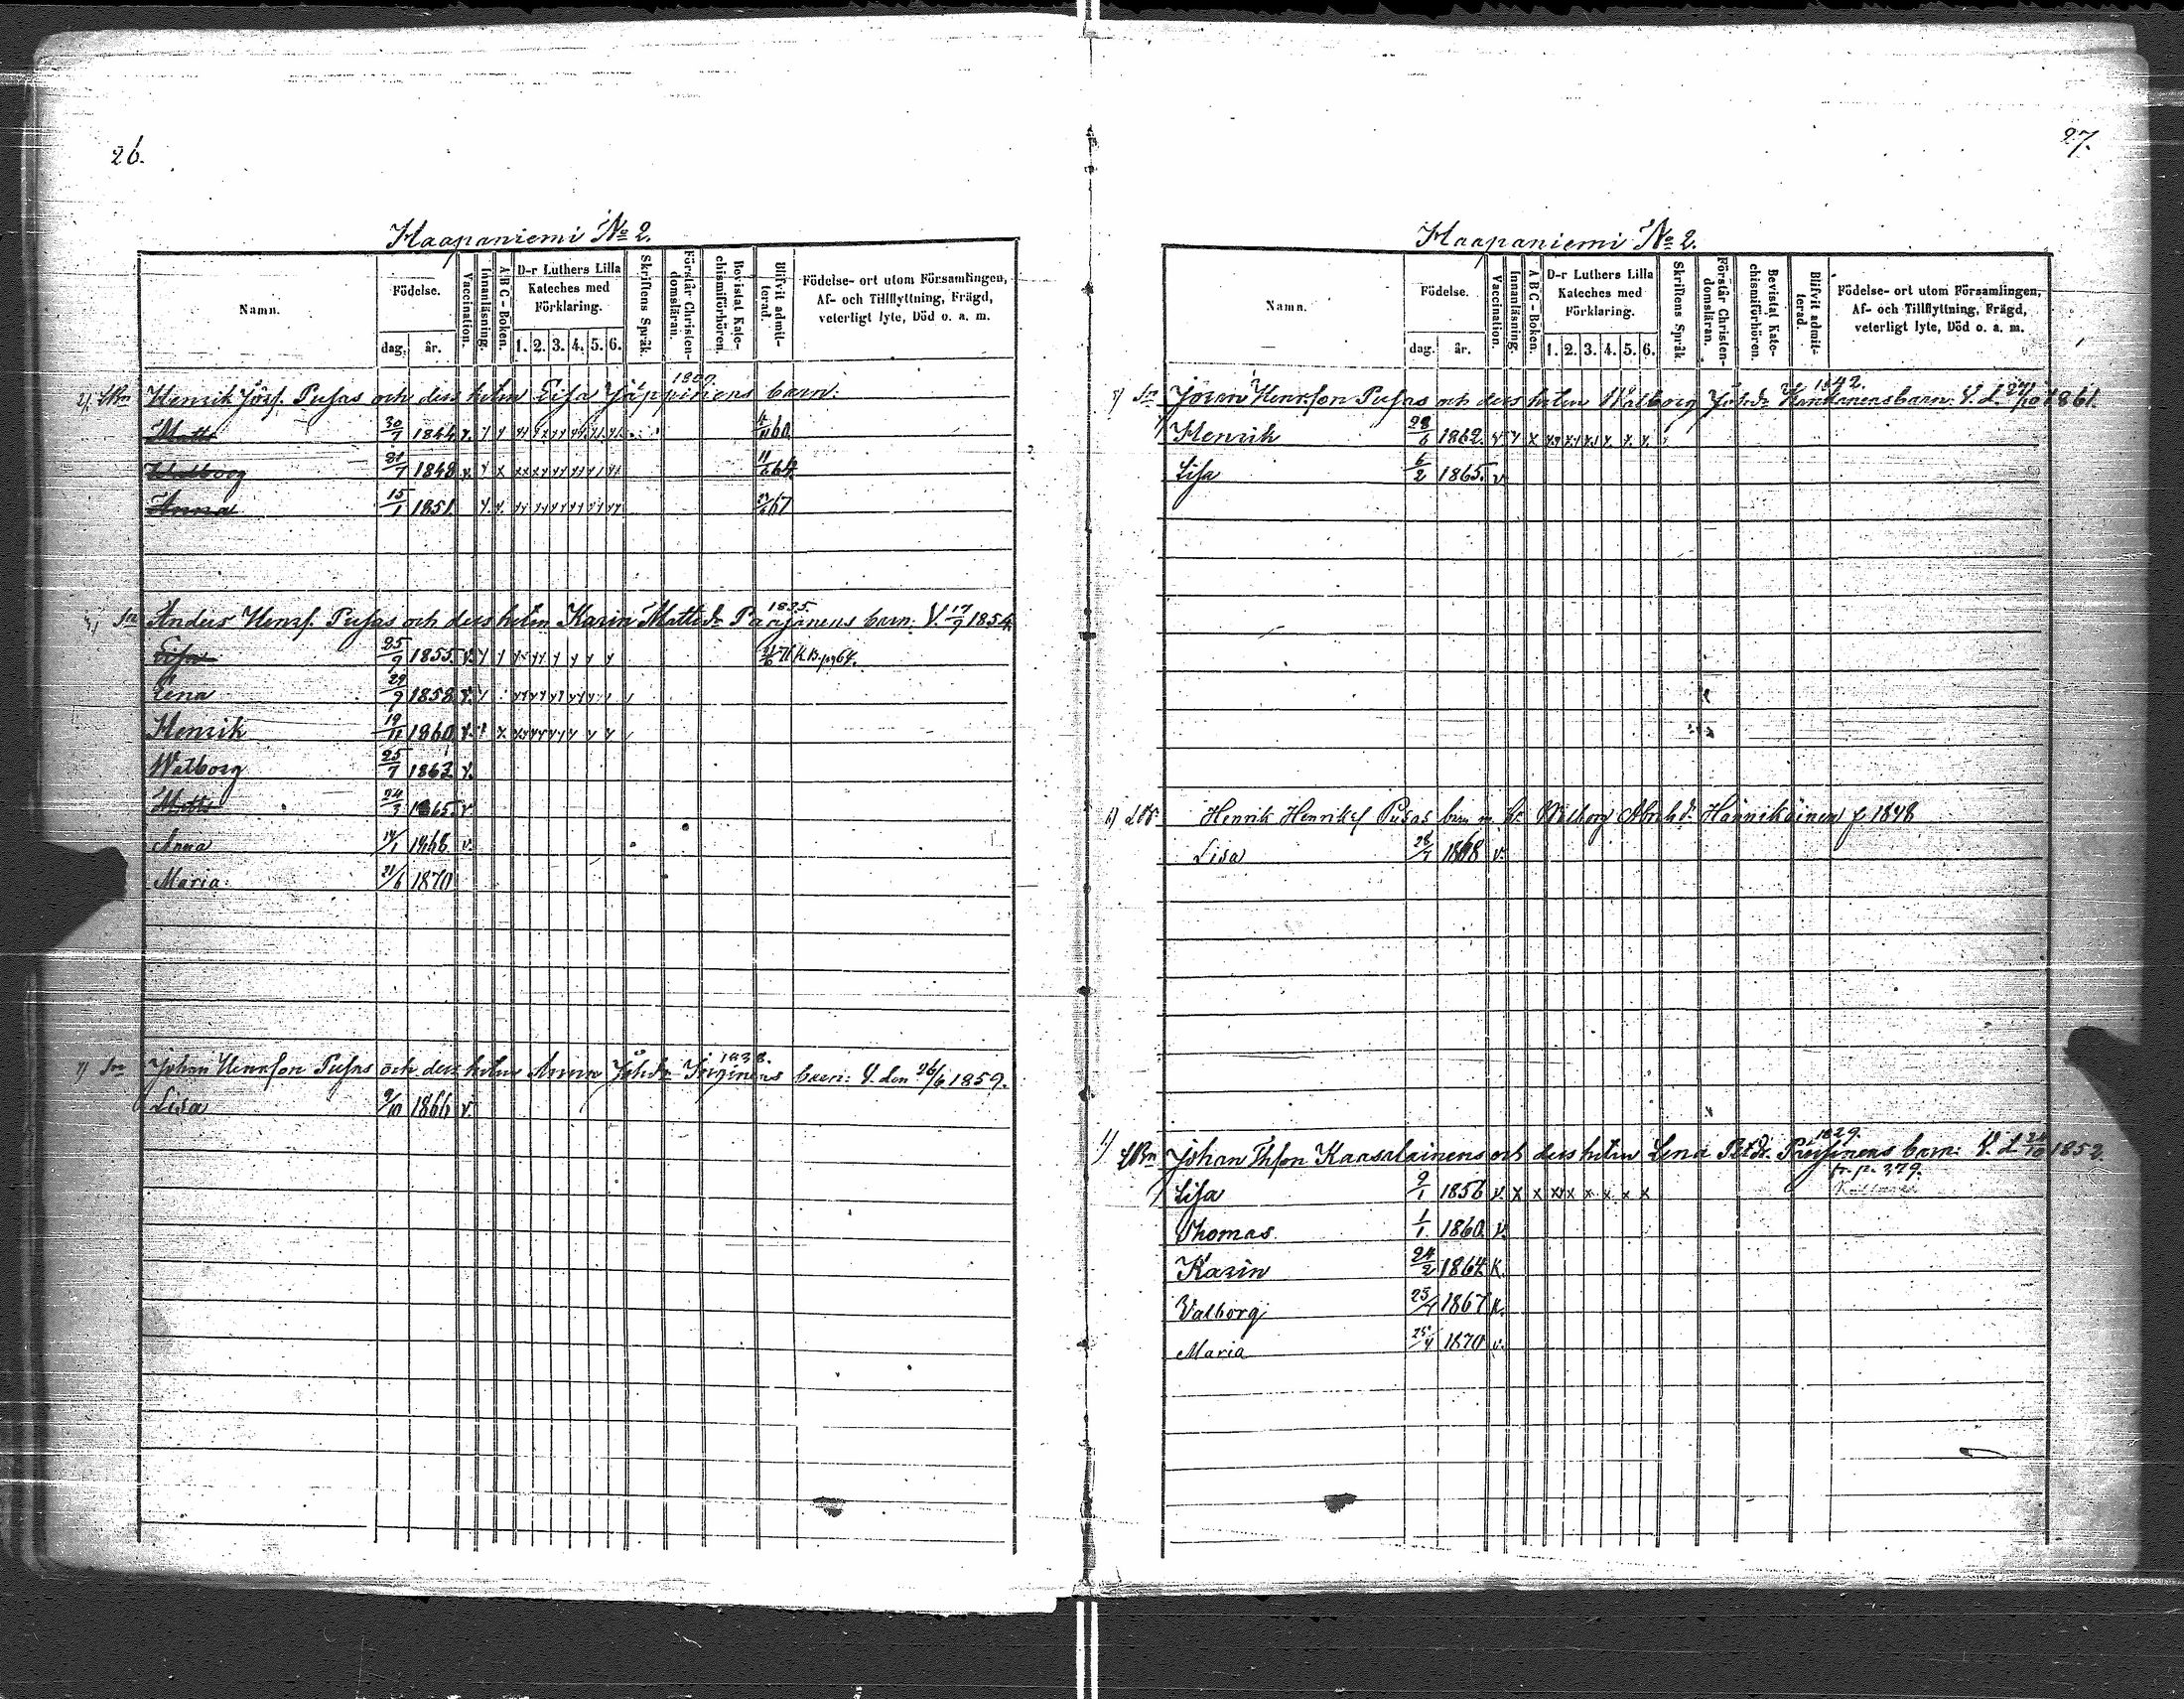 26.
Haapaniemi No 2.
Namn.
Födelse.
dag. år.
Vaccination.
Innanläsning.
ABC-Boken.
D-r Luthers Lilla Kateches med Förklaring.
1. 2. 3. 4. 5. 6.
Skriftens Språk.
Förstår Christen-domsläran.
Bevistat Kate-chismiförhören.
Blifvit admit-terad.
Födelse- ort utom Församlingen, Af- och Tillflyttning, Frägd, veterligt lyte, Död o. a. m.
Henrik Jözf. Pusas och dess hstru Lisa Jäppinens barn:
Matts 30/7 1844 60
Walborg 21/7 1848 11 64
Anna 15/1 1851 67
1835.
Anders Henrs. Pusas och dess hstru Karin Mattsdr Paajanens barn: V. 17/9 1854
Lisa 25/9 1855. v. 71 K.B. pag 64.
Lena 29/9 1858 v.
Henrik 19/11 1860 v.
Walborg 25/7 1862 v.
Matts 24/3 1865. v.
Anna 14/1 1868 v.
Maria 21/6 1870
1838.
Johan Henrson Pusas och dess hstru Anna Johdr barn: V. den 26/6 1859.
Lisa 9/10 1866 v.
27.
Haapaniemi No 2.
Namn.
Födelse.
dag. år.
Vaccination.
Innanläsning.
ABC-Boken.
D-r Luthers Lilla Kateches med Förklaring.
1. 2. 3. 4. 5. 6.
Skriftens Språk.
Förstår Christen-domsläran.
Bevistat Kate-chismiförhören.
Blifvit admit-terad.
Födelse- ort utom Församlingen, Af- och Tillflyttning, Frägd, veterligt lyte, Död o. a. m.
1842.
Jöran Henrson Pusas och dess hstru Walborg barn: V. d. 27/10 1861.
Henrik 28/6 1862. v
Lisa 6/2 1865. v
Henrik Henriks Pusas barn m. h. Walborg Abrahdr Hännikäinen f. 1848
Lisa 28/7 1868 v.
1829.
Johan Thson Kaasalainens och dess hstru Lena Petdr barn: V. d. 1852.
fr. p. 279.
Lisa 9/1 1856 v. x x x x x x x x
Thomas 1/1 1860. v.
Karin 24/2 1864 v.
Valborg 25/4 1867 v.
Maria 25/4 1870 v.